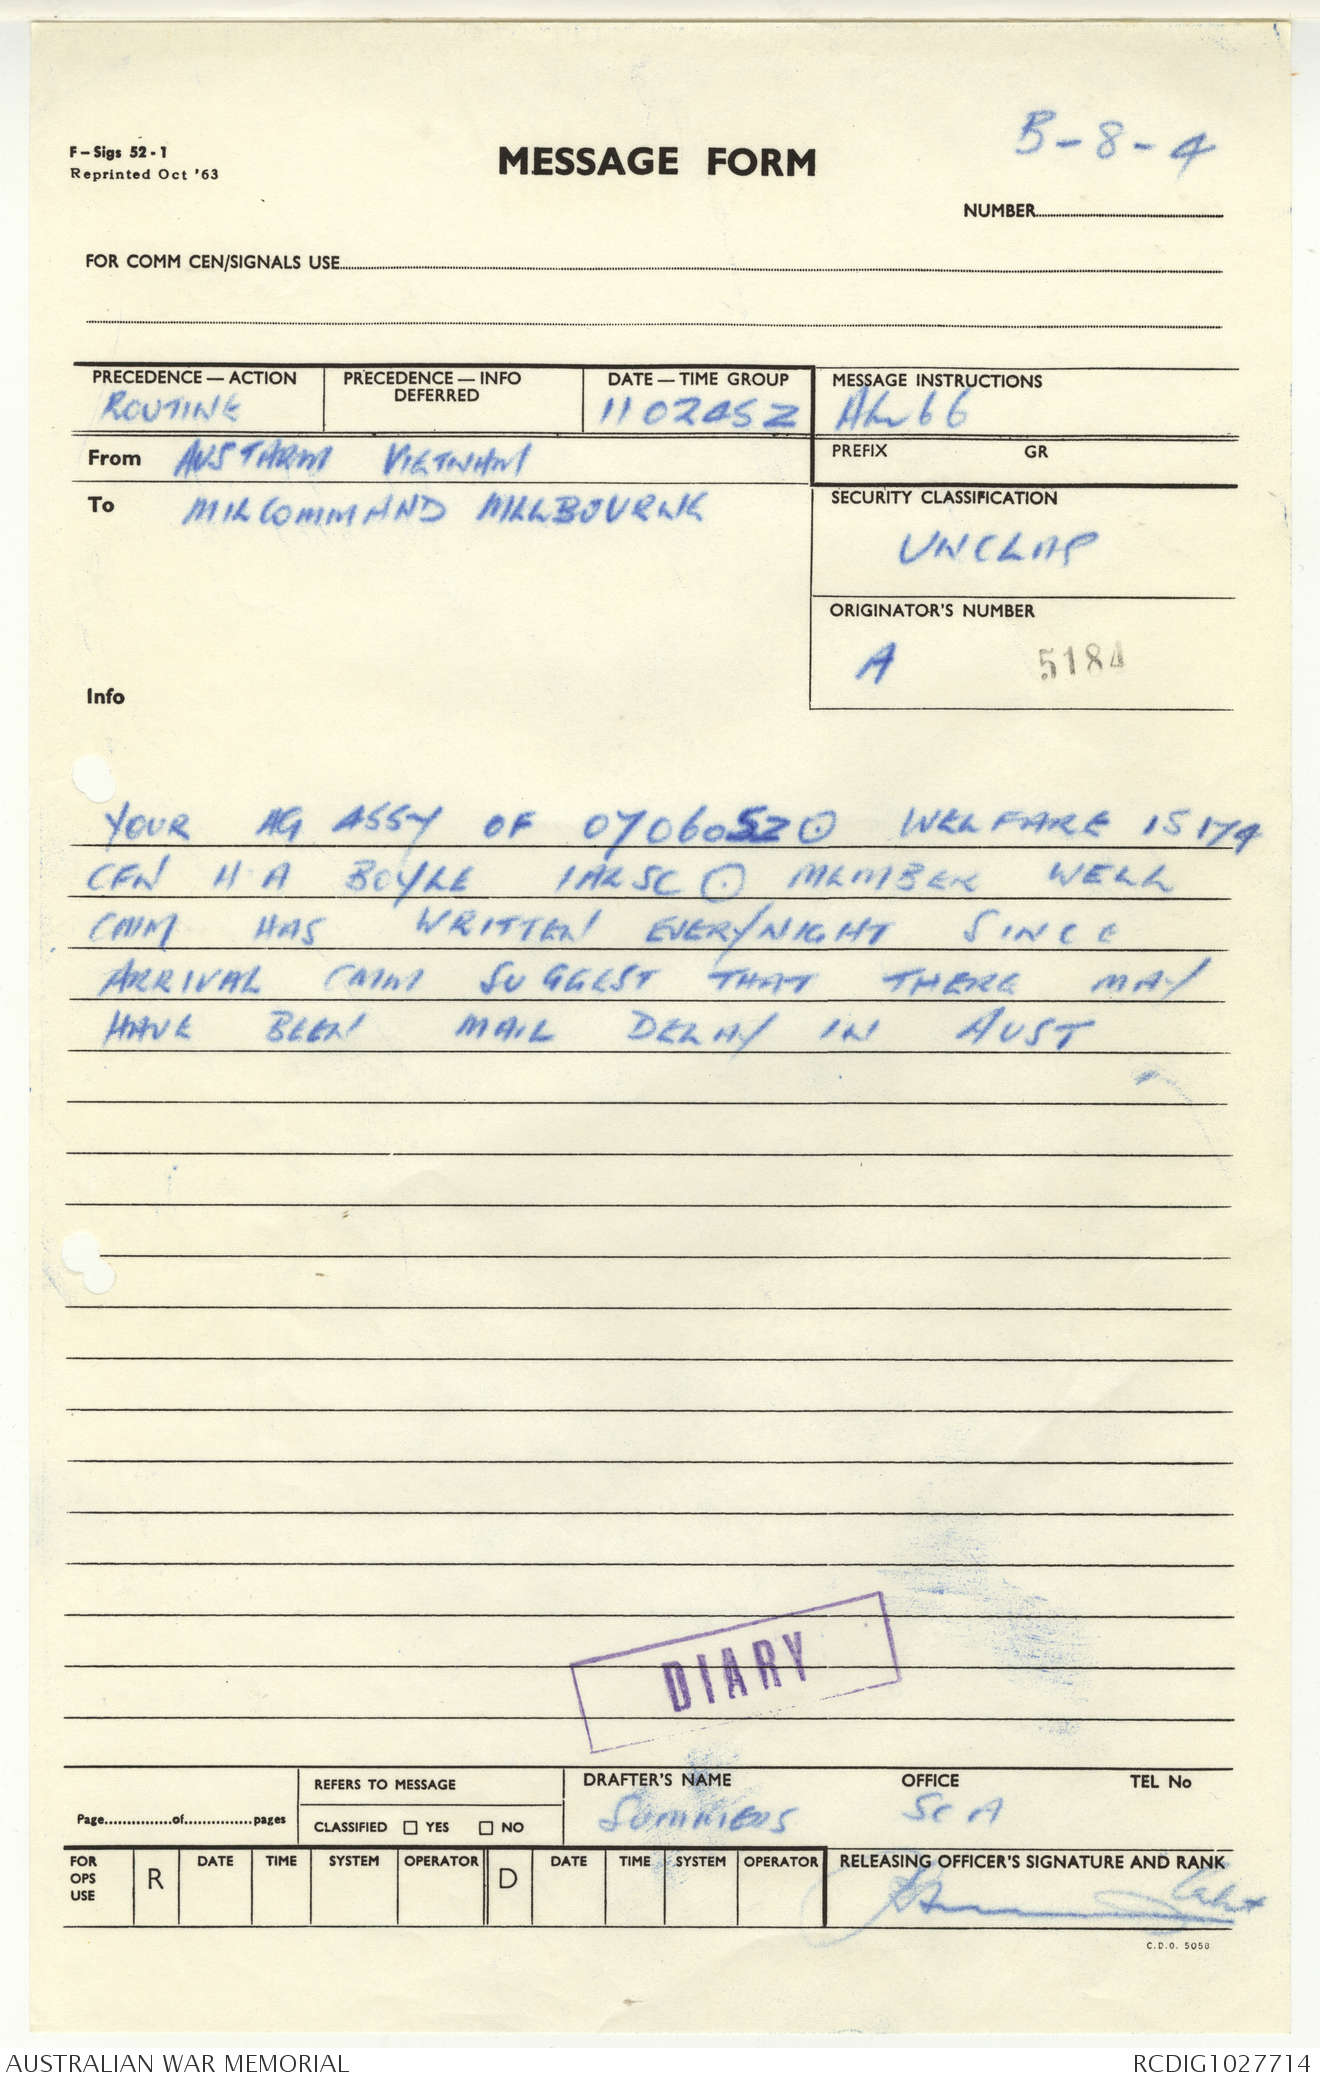 F-Sigs 52-1
Reprinted Oct '63
MESSAGE FORM
B-8-4
NUMBER
FOR COMM CEN/SIGNALS USE
PRECEDENCE — ACTION
ROUTINE
PRECEDENCE — INFO
DEFERRED
DATE — TIME GROUP
110245Z
MESSAGE INSTRUCTIONS
AL 66
From AUSTARM VIETNAM
PREFIX GR
To MILCOMMAND MELBOURNE
SECURITY CLASSIFICATION
UNCLAS
ORIGINATOR'S NUMBER
A 5184
Info
YOUR AG ASSY OF 070605Z ⊙ WELFARE 15174
CFN H A BOYLE 1ALSC ⊙ MEMBER WELL
CMM HAS WRITTEN EVERY NIGHT SINCE
ARRIVAL CMM SUGGEST THAT THERE MAY
HAVE BEEN MAIL DELAY IN AUST
DIARY
Page...............of...............pages
REFERS TO MESSAGE
CLASSIFIED ☐ YES ☐ NO
DRAFTER'S NAME
SUMMERS
OFFICE
SC A
TEL No
FOR OPS USE
R
DATE TIME SYSTEM OPERATOR
D
DATE TIME SYSTEM OPERATOR
RELEASING OFFICER'S SIGNATURE AND RANK
C.D.O. 5058
AUSTRALIAN WAR MEMORIAL
RCDIG1027714